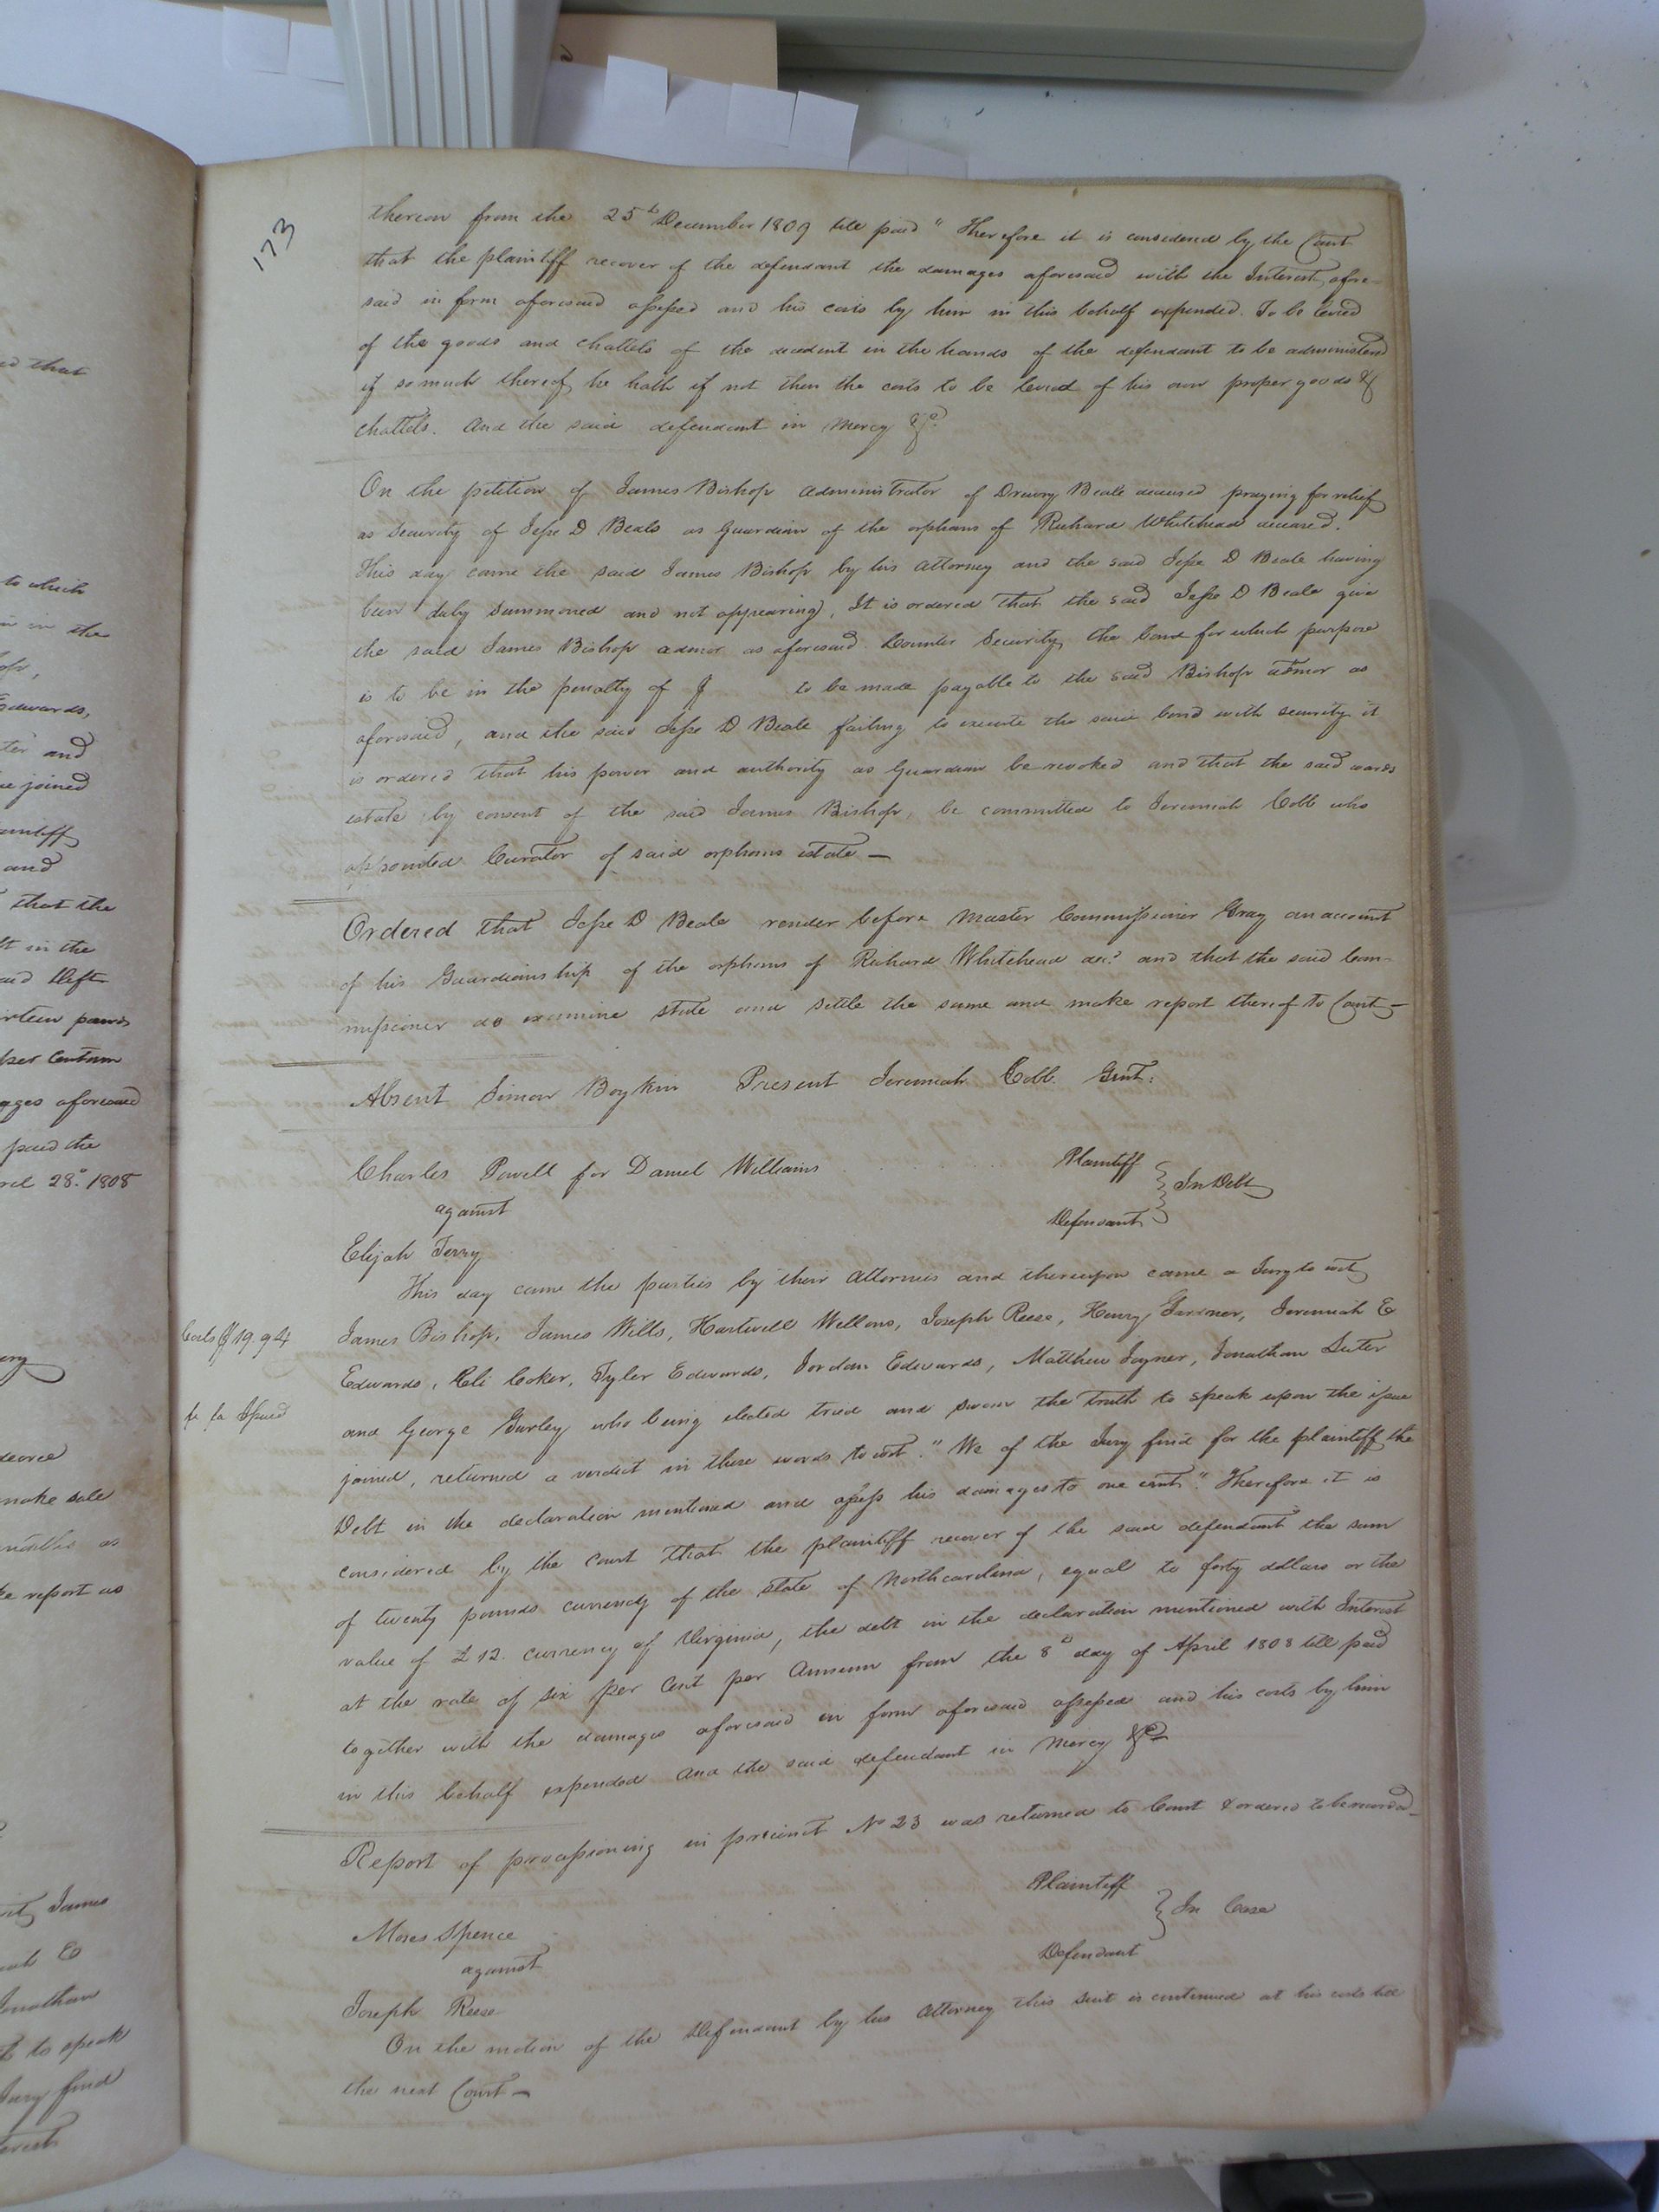 173
thereon from the 25th December 1809 till paid" Therefore it is considered by the Court
that the plaintiff recover of the defendant the damages aforesaid with the Interest afore-
said in form aforesaid assessed and his costs by him in this behalf expended. To be levied
of the goods and chattels of the decedent in the hands of the defendant to be administered
if so much thereof he hath if not then the costs to be levied of his own proper goods &
chattels. And the said defendant in Mercy &c.
On the petition of James Bishop administrator of Drewry Beale deceased praying for relief
as Security of Jesse D Beale as Guardian of the orphans of Richard Whitehead deceased.
This day came the said James Bishop by his attorney and the said Jesse D Beale having
been duly Summoned and not appearing, It is ordered that the said Jesse D Beale give
the said James Bishop admor as aforesaid Counter Security the bond for which purpose
is to be in the penalty of $ to be made payable to the said Bishop admor as
aforesaid, and the said Jesse D Beale failing to execute the said bond with security it
is ordered that his power and authority as Guardian be revoked and that the said wards
estate by consent of the said James Bishop, be committed to Jeremiah Cobb who
appointed Curator of said orphans estate —
Ordered that Jesse D Beale render before Master Commissioner Gray an account
of his Guardianship of the orphans of Richard Whitehead decd and that the said Com-
missioner do examine state and settle the same and make report thereof to Court —
Absent Simon Boykin Present Jeremiah Cobb Gent:
Charles Powell for Daniel Williams Plaintiff
against } In Debt
Elijah Terry Defendant
This day came the parties by their Attornies and thereupon came a Jury to wit
Costs $19.94 James Bishop, James Wills, Hartwell Wellons, Joseph Reese, Henry Gardner, Jeremiah E
Edwards, Eli Coker, Tyler Edwards, Jordan Edwards, Matthew Joyner, Jonathan Suter
fi fa Issued and George Gurley who being elected tried and sworn the truth to speak upon the issue
joined, returned a verdict in these words to wit. "We of the Jury find for the plaintiff the
Debt in the declaration mentioned and assess his damages to one cent." Therefore it is
considered by the Court that the plaintiff recover of the said defendant the sum
of twenty pounds currency of the state of Northcarolina, equal to forty dollars or the
value of £12. currency of Virginia, the debt in the declaration mentioned with Interest
at the rate of six per Cent per Annum from the 8th day of April 1808 till paid
together with the damages aforesaid in form aforesaid assessed and his costs by him
in this behalf expended and the said defendant in Mercy &c
Report of processioning in precinct No 23 was returned to Court & ordered to be recorded
Moses Spence Plaintiff
against } In Case
Joseph Reese Defendant
On the motion of the Defendant by his Attorney this suit is continued at his costs till
the next Court —